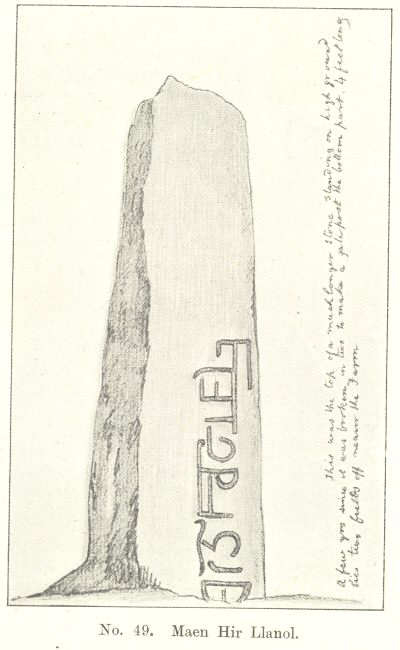 This was the top of a much longer stone standing on high ground
A few yrs since it was broken in two to make a gate post the bottom part 4 feet long
lies two fields off nearer the Farm
No. 49. Maen Hir Llanol.